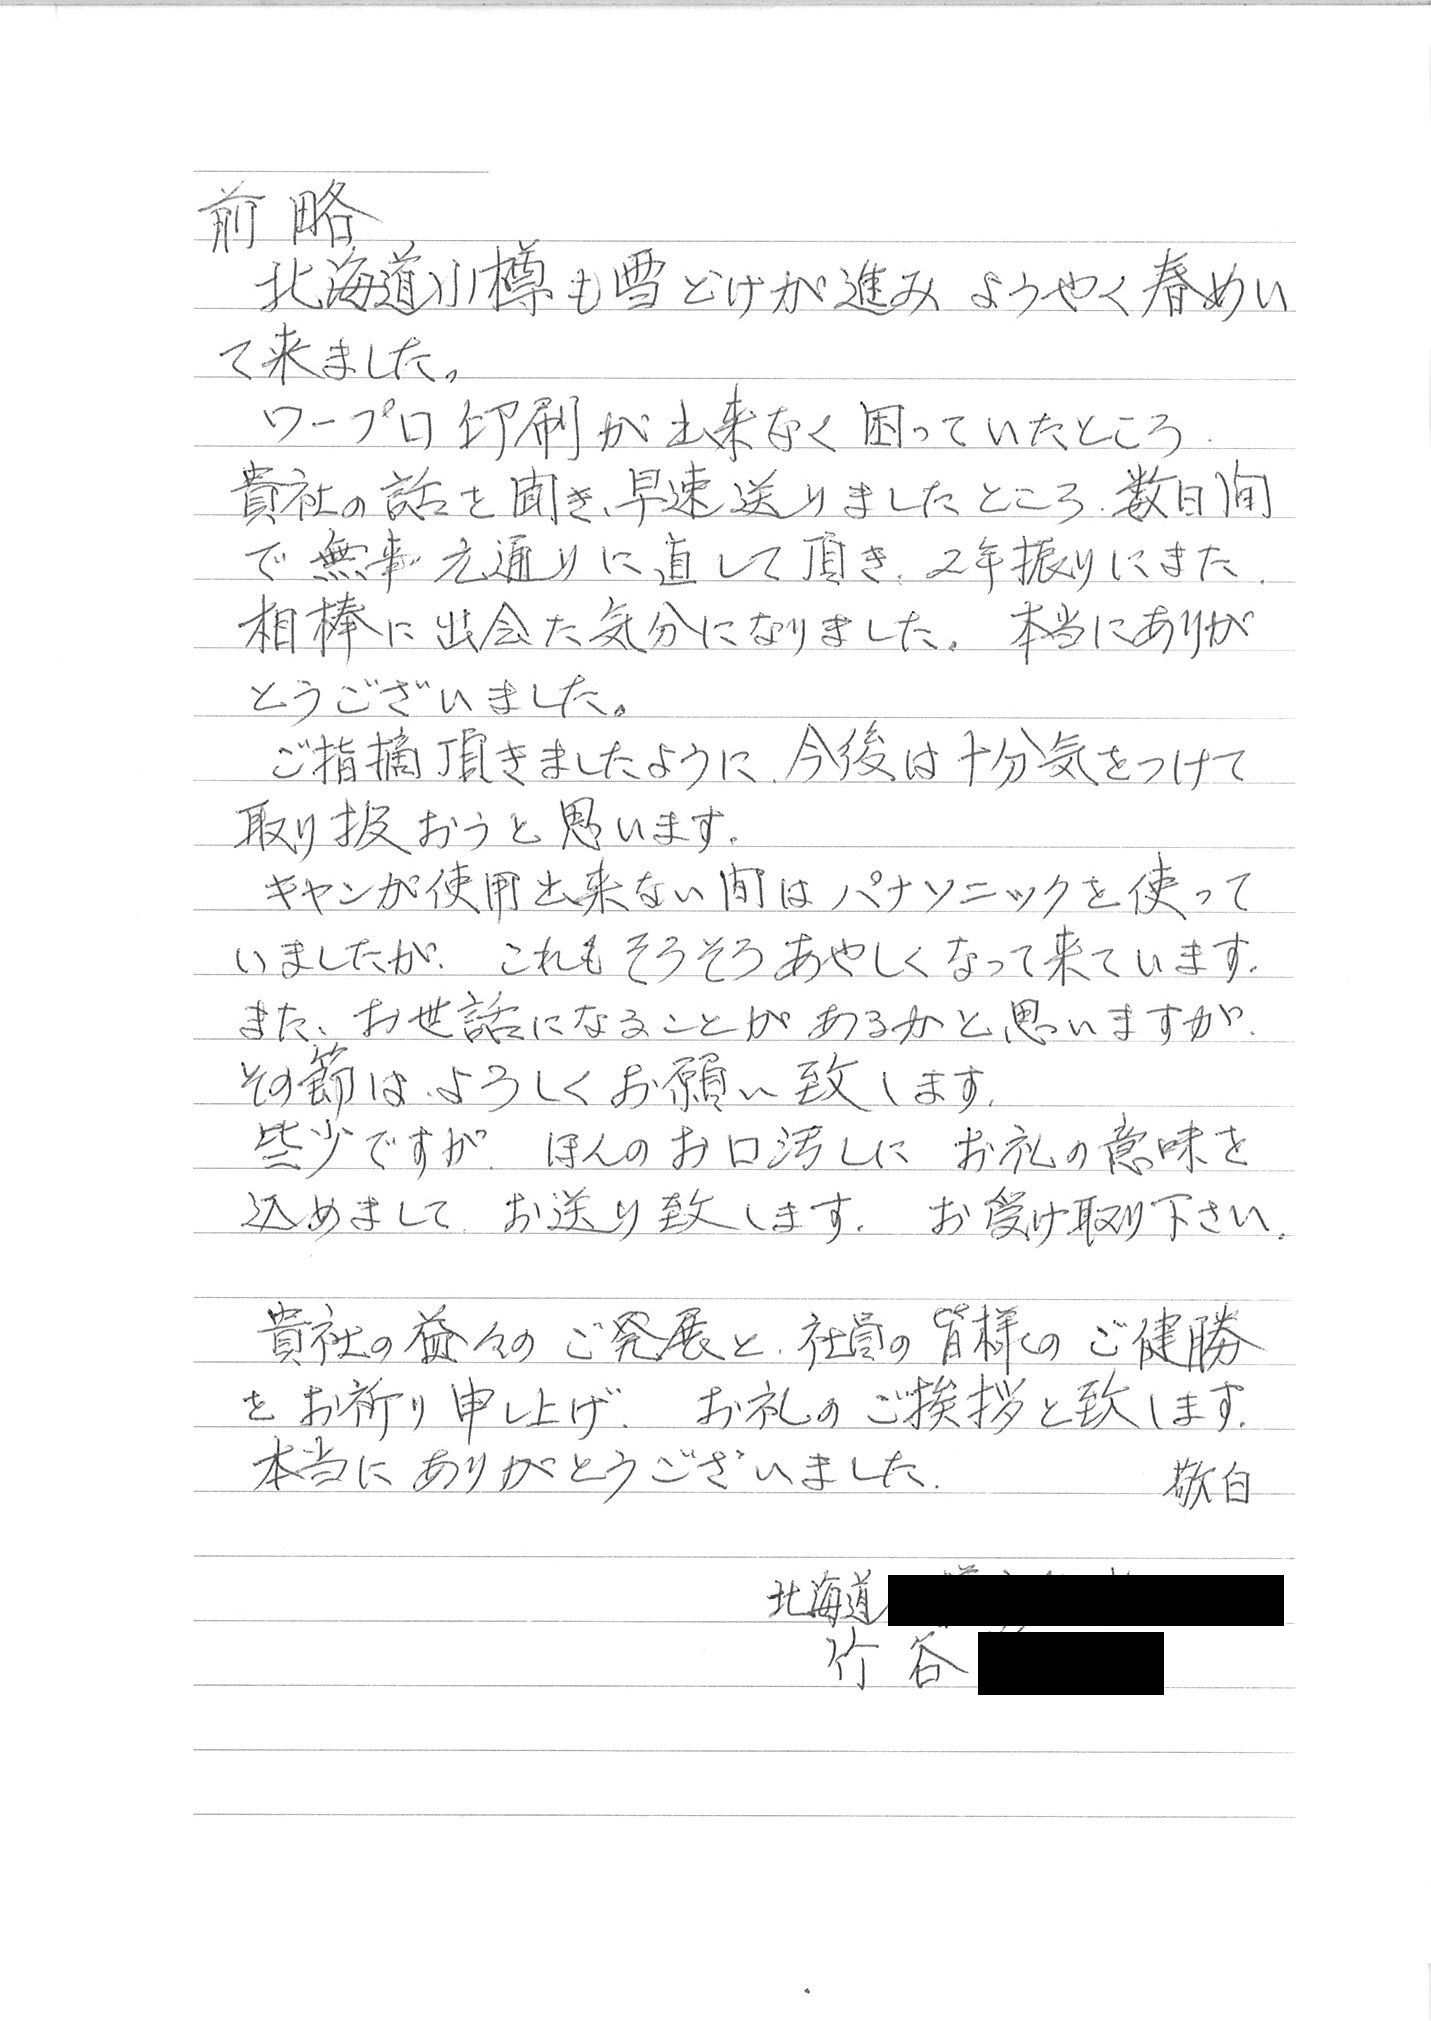 前略
北海道小樽も雪どけが進み ようやく春めい
て来ました。
ワープロ印刷が出来なく困っていたところ、
貴社の話を聞き、早速送りましたところ、数日間
で無事元通りに直して頂き、2年振りにまた、
相棒に出会た気分になりました。 本当にありが
とうございました。
ご指摘頂きましたように、今後は十分気をつけて
取り扱おうと思います。
キャンが使用出来ない間はパナソニックを使って
いましたが、これもそろそろあやしくなって来ています。
また、お世話になることがあるかと思いますが、
その節は、よろしくお願い致します。
些少ですが、ほんのお口汚しに お礼の意味を
込めまして、お送り致します。 お受け取り下さい。
貴社の益々のご発展と、社員の皆様のご健勝
をお祈り申し上げ、 お礼のご挨拶と致します。
本当にありがとうございました。 敬白
北海道
竹谷